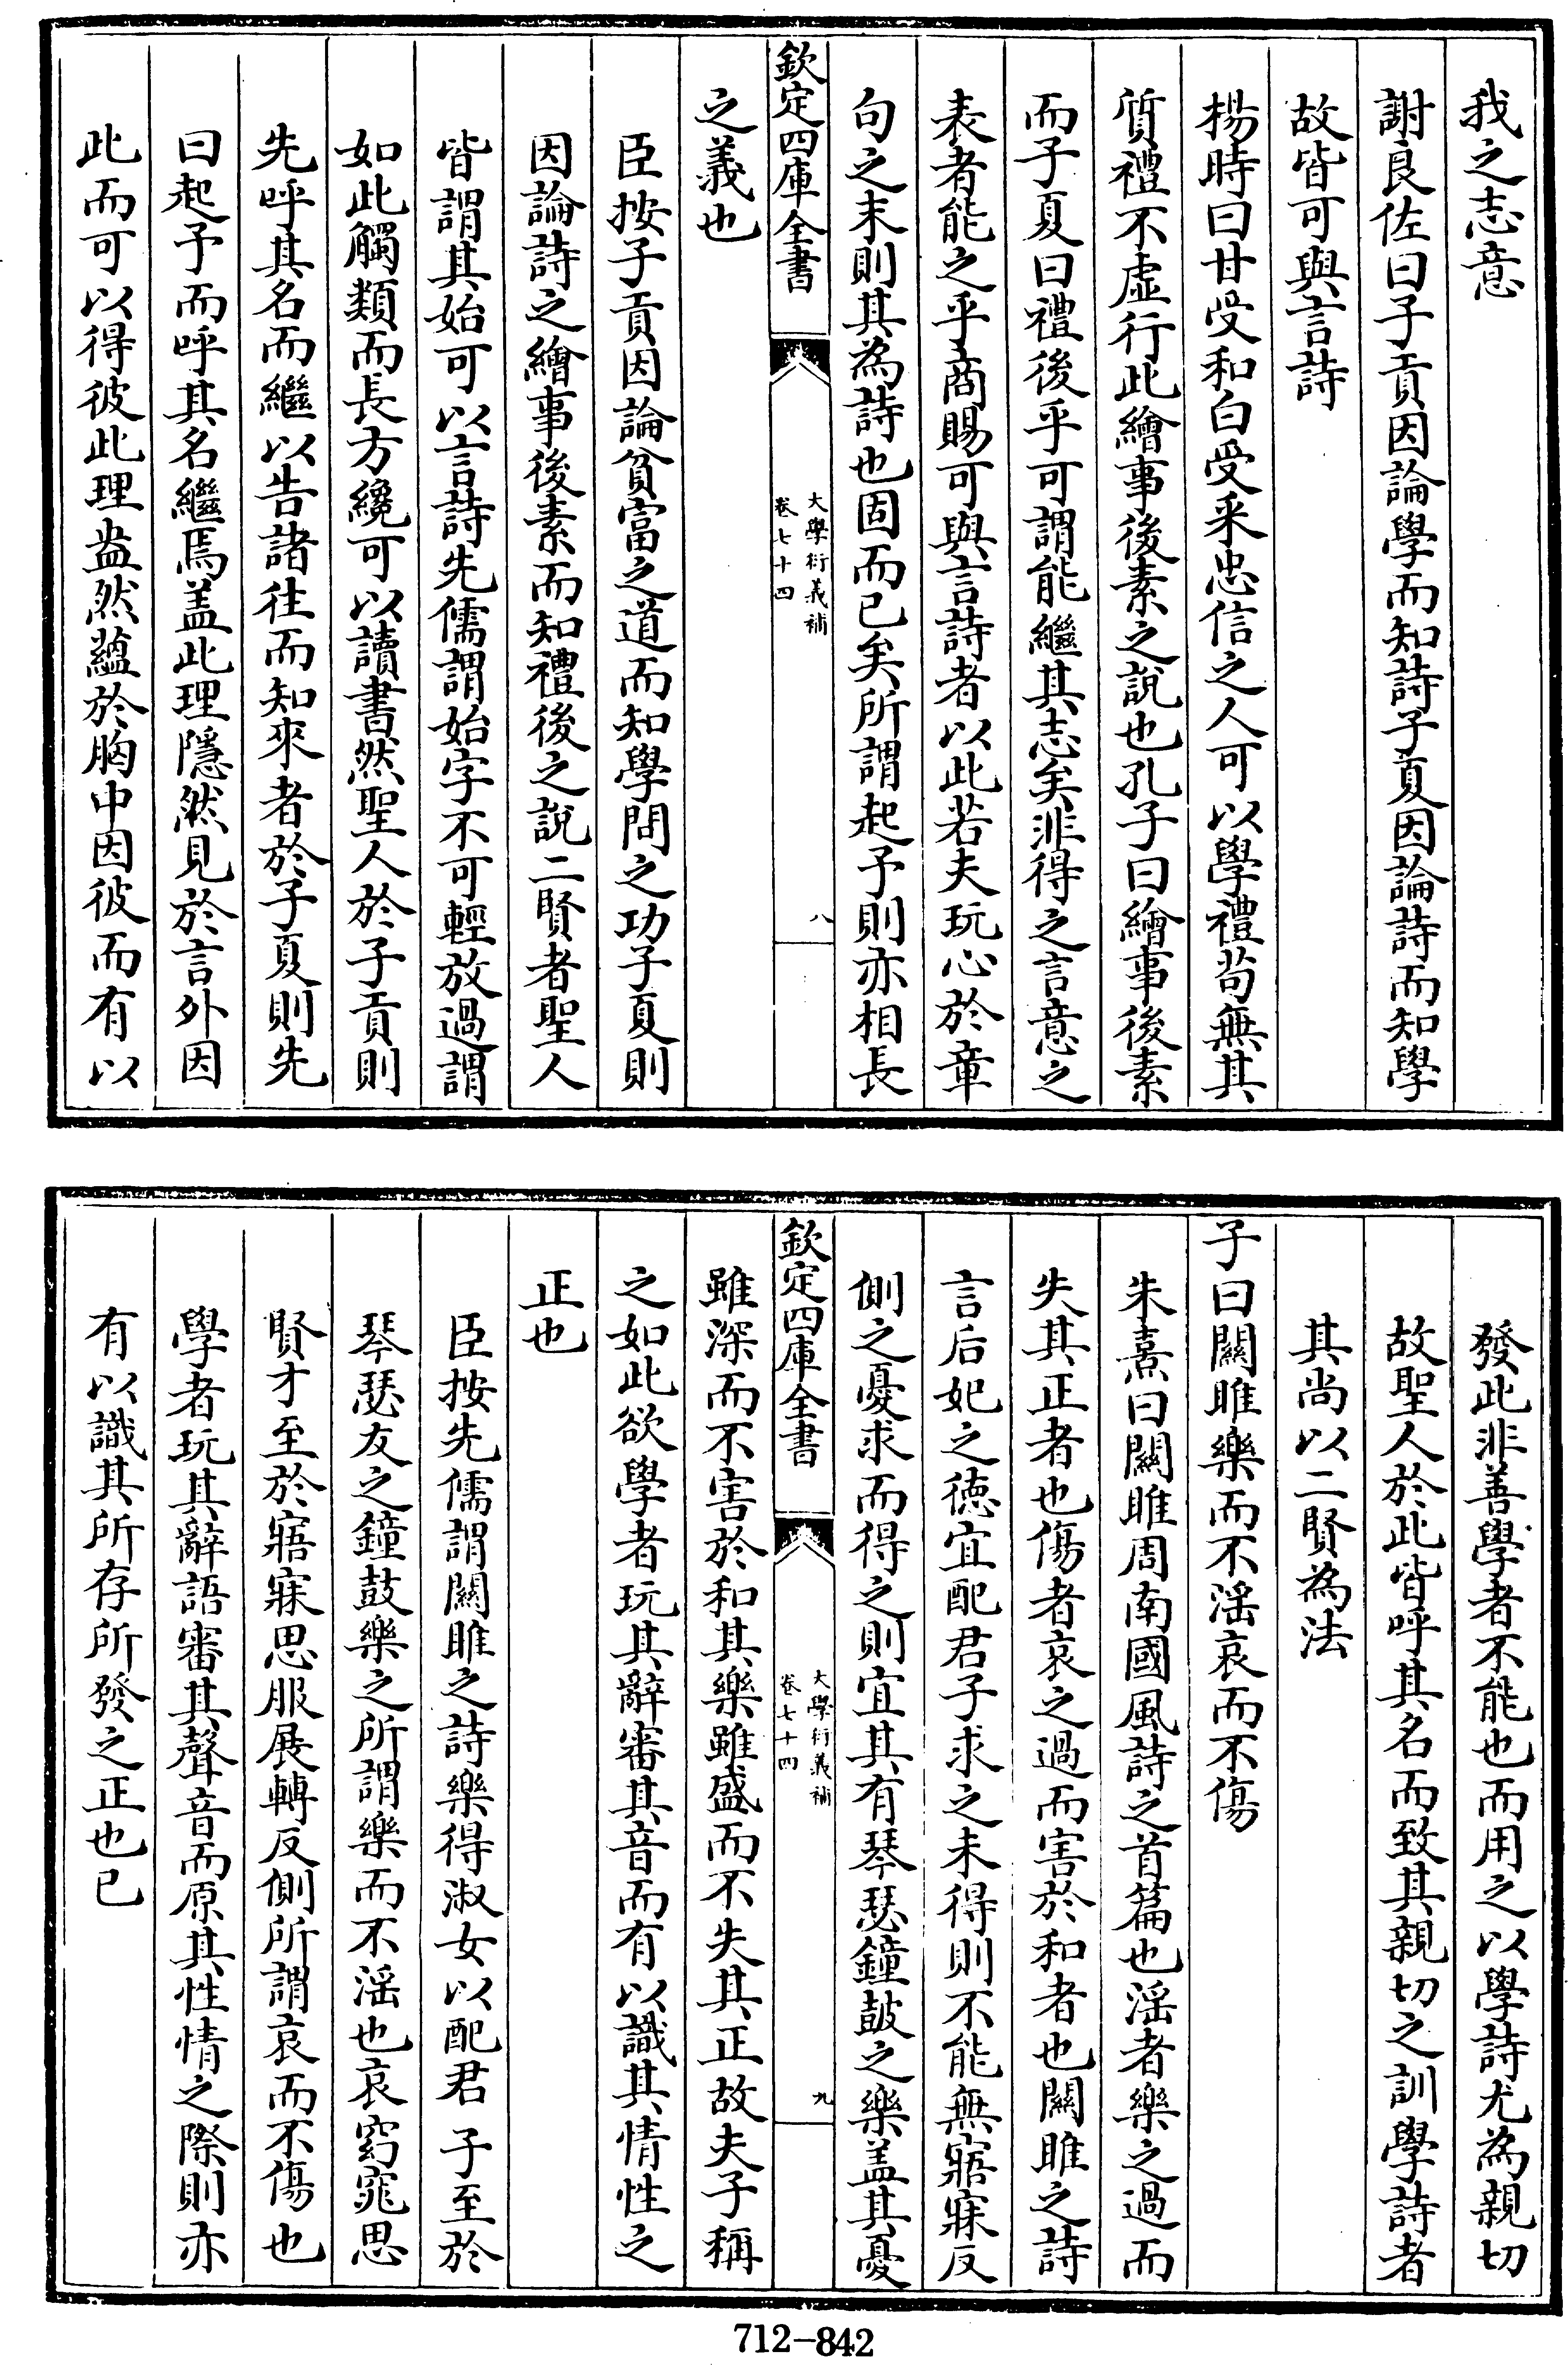 我之志意
謝良佐曰子貢因論學而知詩子夏因論詩而知學
故皆可與言詩
楊時曰甘受和白受采忠信之人可以學禮苟無其
質禮不虛行此繪事後素之說也孔子曰繪事後素
而子夏曰禮後乎可謂能繼其志矣非得之言意之
表者能之乎商賜可與言詩者以此若夫玩心於章
句之末則其為詩也固而已矣所謂起予則亦相長
欽定四庫全書
大學衍義補
卷七十四
八
之義也
臣按子貢因論貧富之道而知學問之功子夏則
因論詩之繪事後素而知禮後之說二賢者聖人
皆謂其始可以言詩先儒謂始字不可輕放過謂
如此觸類而長方纔可以讀書然聖人於子貢則
先呼其名而繼以告諸往而知來者於子夏則先
曰起予而呼其名繼焉盖此理隱然見於言外因
此而可以得彼此理盎然蘊於胸中因彼而有以
發此非善學者不能也而用之以學詩尤為親切
故聖人於此皆呼其名而致其親切之訓學詩者
其尚以二賢為法
子曰關雎樂而不淫哀而不傷
朱熹曰關雎周南國風詩之首篇也淫者樂之過而
失其正者也傷者哀之過而害於和者也關雎之詩
言后妃之德宜配君子求之未得則不能無寤寐反
側之憂求而得之則宜其有琴瑟鐘鼓之樂盖其憂
欽定四庫全書
大學衍義補
卷七十四
九
雖深而不害於和其樂雖盛而不失其正故夫子稱
之如此欲學者玩其辭審其音而有以識其情性之
正也
臣按先儒謂關雎之詩樂得淑女以配君子至於
琴瑟友之鐘鼓樂之所謂樂而不淫也哀窈窕思
賢才至於寤寐思服展轉反側所謂哀而不傷也
學者玩其辭語審其聲音而原其性情之際則亦
有以識其所存所發之正也已
712-842